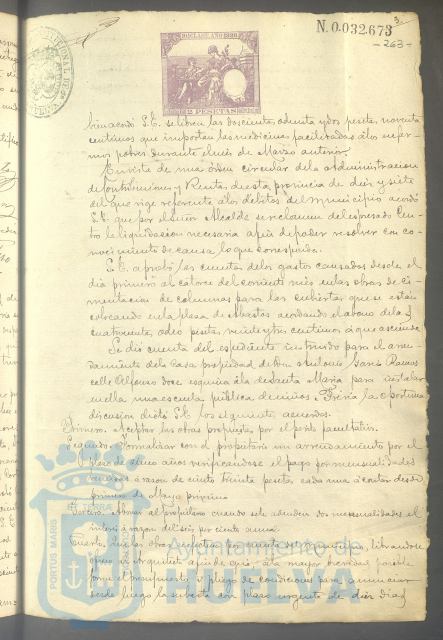 N. 0.032.673
3
-263-
10ª CLASE. AÑO 1896
2 PESETAS
bien acordó S.E. se libren las doscientas ochenta y dos pesetas noventa
centimos que importan las medicinas facilitadas á los enfer-
mos pobres durante el mes de Marzo anterior.
En vista de una órden circular de la Administracion
de Contribuciones y Rentas de esta provincia de diez y siete
del que rige referente á los debitos del municipio acordó
S.E. que por el señor Alcalde se reclamen del espresado Cen
tro la liquidacion necesaria á fin de poder resolver con co-
nocimiento de causa lo que corresponda.
S.E. aprobó las cuentas de los gastos causados desde el
dia primero al catorce del corriente mes en las obras de ci-
mentacion de columnas para las cubiertas que se están
colocando en la plaza de Abastos acordando el abono de las
pesetas veinte y tres centimos á que asciende.
Se dió cuenta del espediente instruido para el arren-
damiento de la Casa propiedad de Don Antonio Ramos
calle Alfonso doce esquina á la de Santa Maria para instalar
en ella una escuela pública de niños y prévia la oportuna
discusion dictó S.E. los siguientes acuerdos.
Primero. Aceptar las obras propuestas por el perito facultativo.
Segundo. Formalizar con el propietario un arrendamiento por el
plazo de cinco años verificandose el pago por mensualidades
á razon de ciento treinta pesetas cada una á contar desde
primero de Mayo próximo
Tercero. Abonar al propietario cuando se le adeuden dos mensualidades el
interés á razon del seis por ciento anual
Cuarto. Que las obras se ejecuten por cuenta del municipio, librandose
oficio al Arquitecto á fin de que á la mayor brevedad posible
forme el presupuesto y pliego de condiciones para anunciar
desde luego la subasta con plazo urgente de diez dias
PORTUS MARIS
Ayuntamiento de
HUELVA